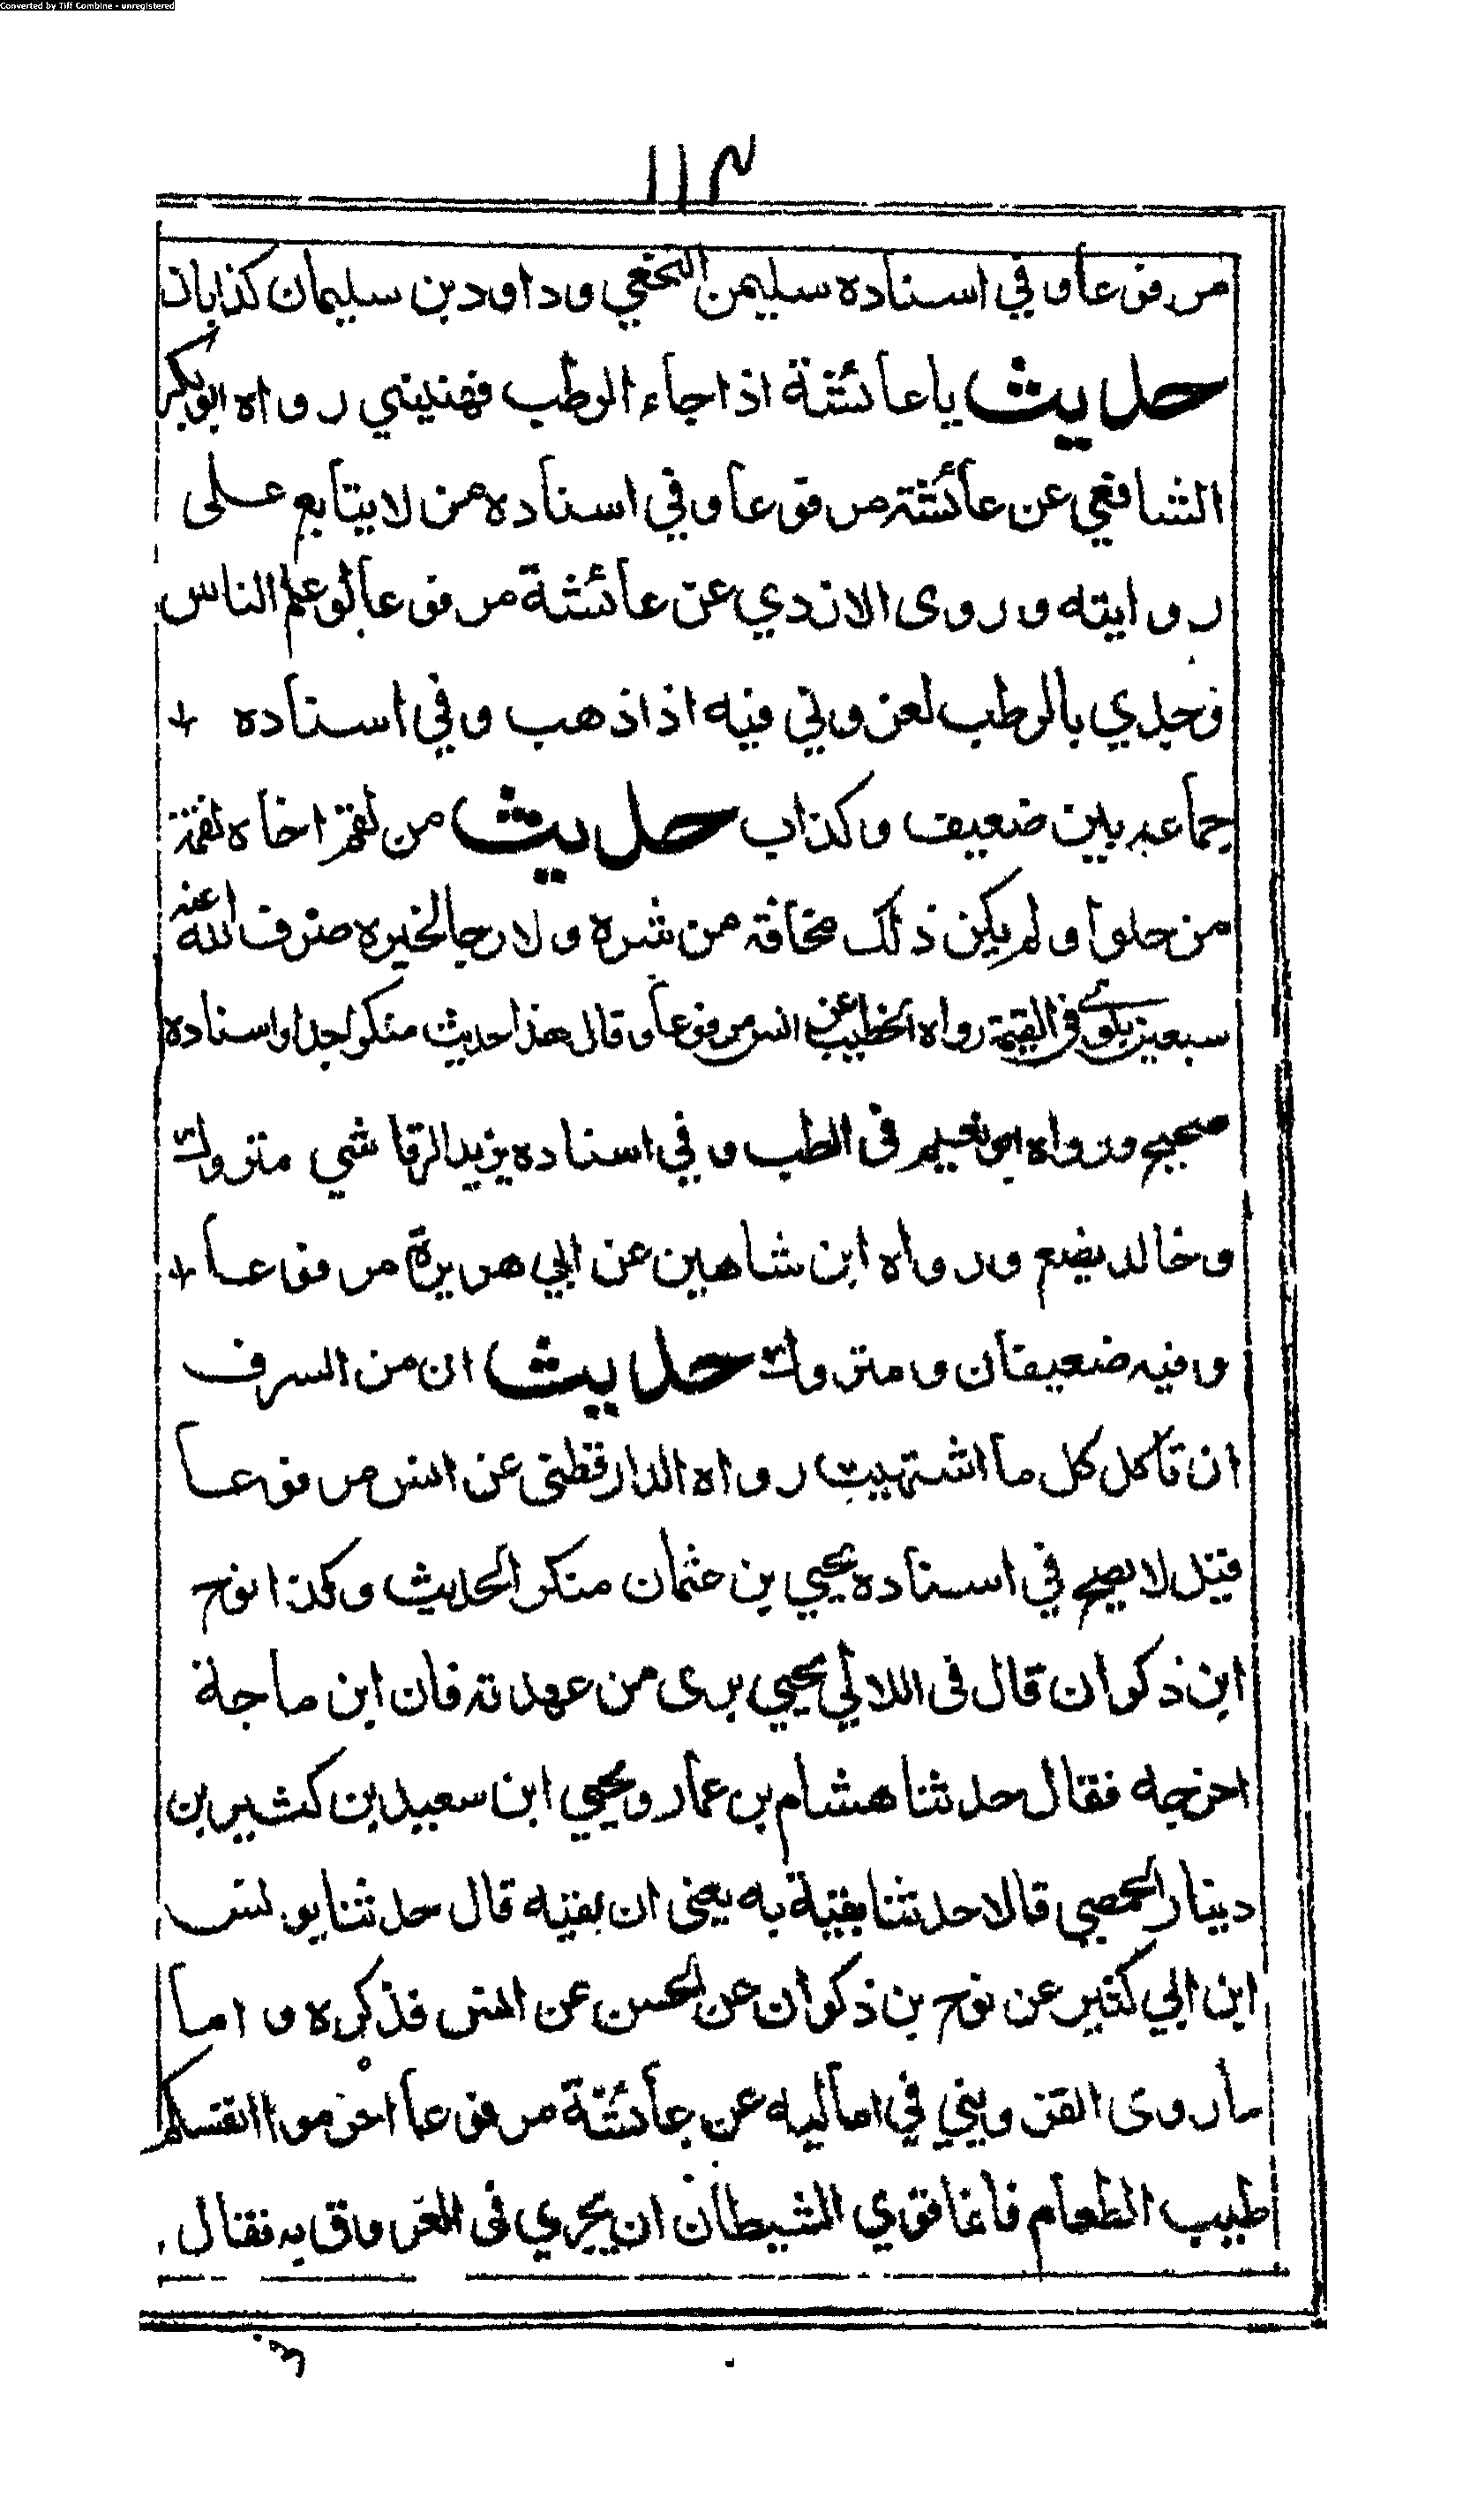 Converted by Tiff Combine - unregistered
١١٣
مرفوعا وفي اسناده سليمن النخعي وداود بن سليمان كذابان
حديث يا عائشة اذا جاء الرطب فهنيني رواه ابو بكر
الشافعي عن عائشة مرفوعا وفي اسناده من لا يتابع على
روايته وروى الازدي عن عائشة مرفوعا لو علم الناس
وجدي بالرطب لعزوني فيه اذا ذهب وفي اسناده +
جماعه بين ضعيف وكذاب حديث من لقم اخاه لقمة
من حلوا ولم يكن ذلك مخافة من شره ولا رجا لخيره صرف الله عنه
سبعين بلوى في القيمة رواه الخطيب عن انس مرفوعا وقال هذا حديث منكر جدا واسناده
صحيح ورواه ابو نعيم فى الطب وفي اسناده يزيد الرقاشي متروك
وخالد يضع ورواه ابن شاهين عن ابي هريرة مرفوعا +
وفيه ضعيفان ومتروك حديث ان من السرف
ان تاكل كل ما اشتهيت رواه الدارقطنى عن انس مرفوعا
قيل لا يصح في اسناده يحيي بن عثمان منكر الحديث وكذا نوح
ابن ذكوان قال فى اللالي يحيي برى من عهدته فان ابن ماجة
اخرجه فقال حدثنا هشام بن عمار ويحيي ابن سعيد بن كثير بن
دينار الحمصي قالا حدثنا بقية به يعنى ان بقيه قال حدثنا يونس
ابن ابي كثير عن نوح بن ذكوان عن الحسن عن انس فذكره واما
ما روى القزويني في اماليه عن عائشة مرفوعا احرموا انفسكم
طيب الطعام فانما قوي الشيطان ان يجري فى العروق به فقال